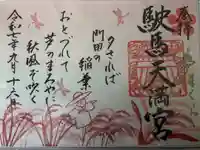 奉拝
駛馬天満宮
夕されば
門田の
稲葉
おとづれて
芦のまろやに
秋風ぞ吹く
令和七年九月十六日